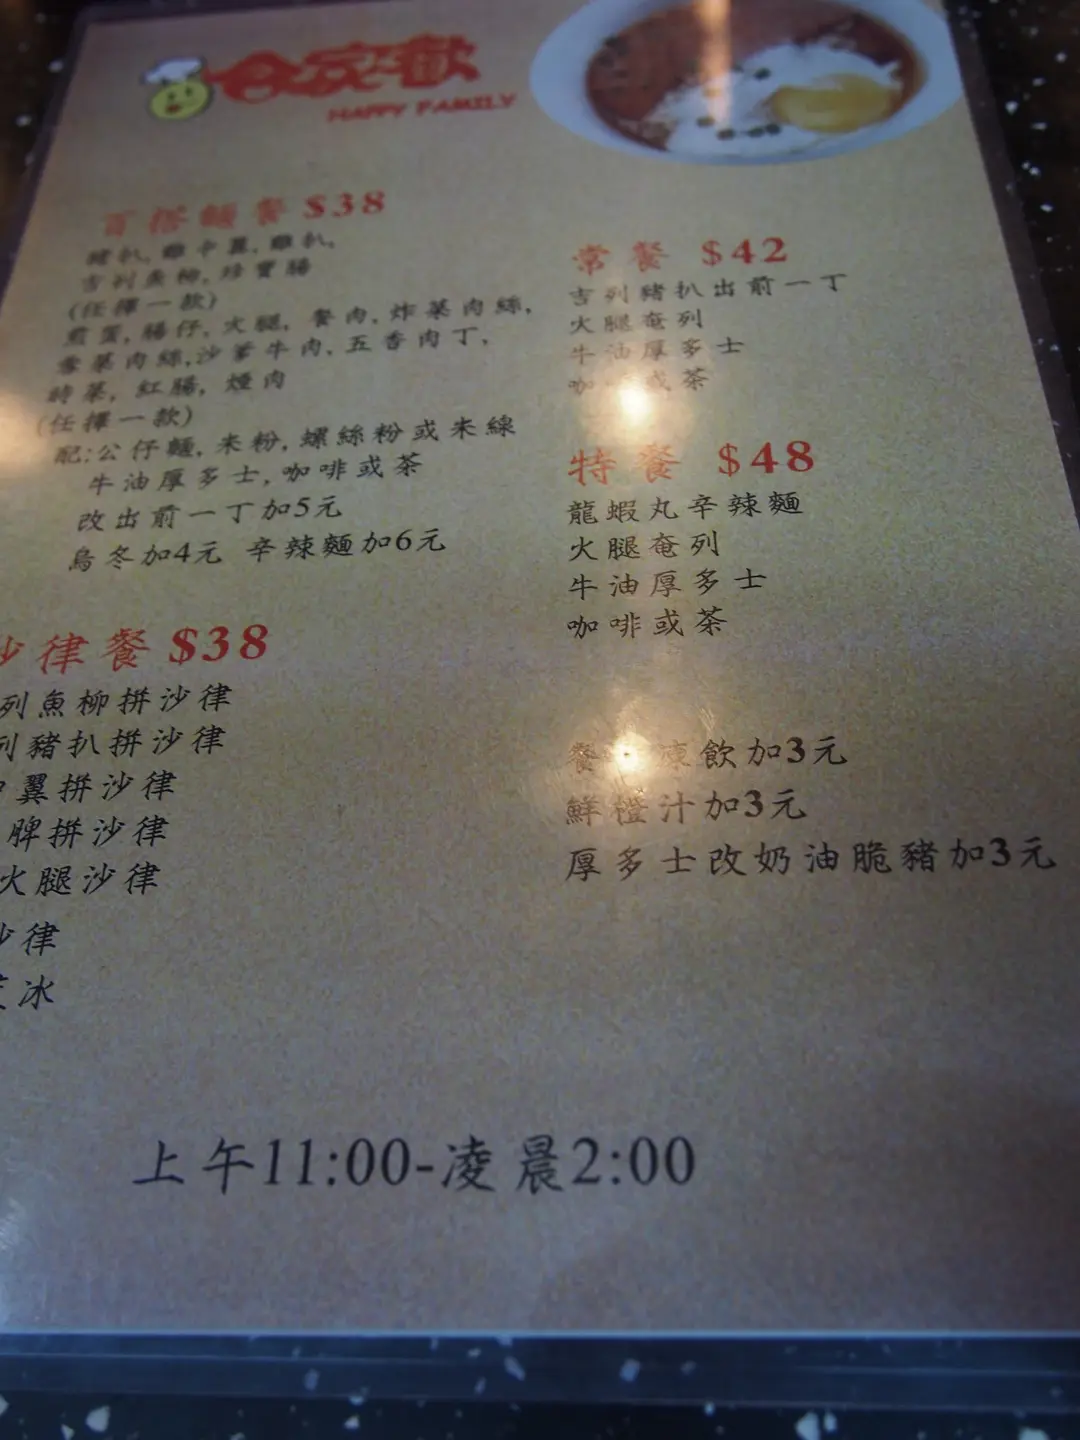 合家歡
HAPPY FAMILY
百搭麵餐 $38
豬扒, 雞中翼, 雞扒,
吉列魚柳, 珍寶腸
(任擇一款)
煎蛋, 腸仔, 火腿, 餐肉, 炸菜肉絲,
雪菜肉絲, 沙爹牛肉, 五香肉丁,
時菜, 紅腸, 煙肉
(任擇一款)
配:公仔麵, 米粉, 螺絲粉或米線
牛油厚多士, 咖啡或茶
改出前一丁加5元
烏冬加4元 辛辣麵加6元
沙律餐 $38
列魚柳拼沙律
列豬扒拼沙律
中翼拼沙律
脾拼沙律
火腿沙律
沙律
冰
常餐 $42
吉列豬扒出前一丁
火腿奄列
牛油厚多士
咖啡或茶
特餐 $48
龍蝦丸辛辣麵
火腿奄列
牛油厚多士
咖啡或茶
餐 凍飲加3元
鮮橙汁加3元
厚多士改奶油脆豬加3元
上午11:00-凌晨2:00